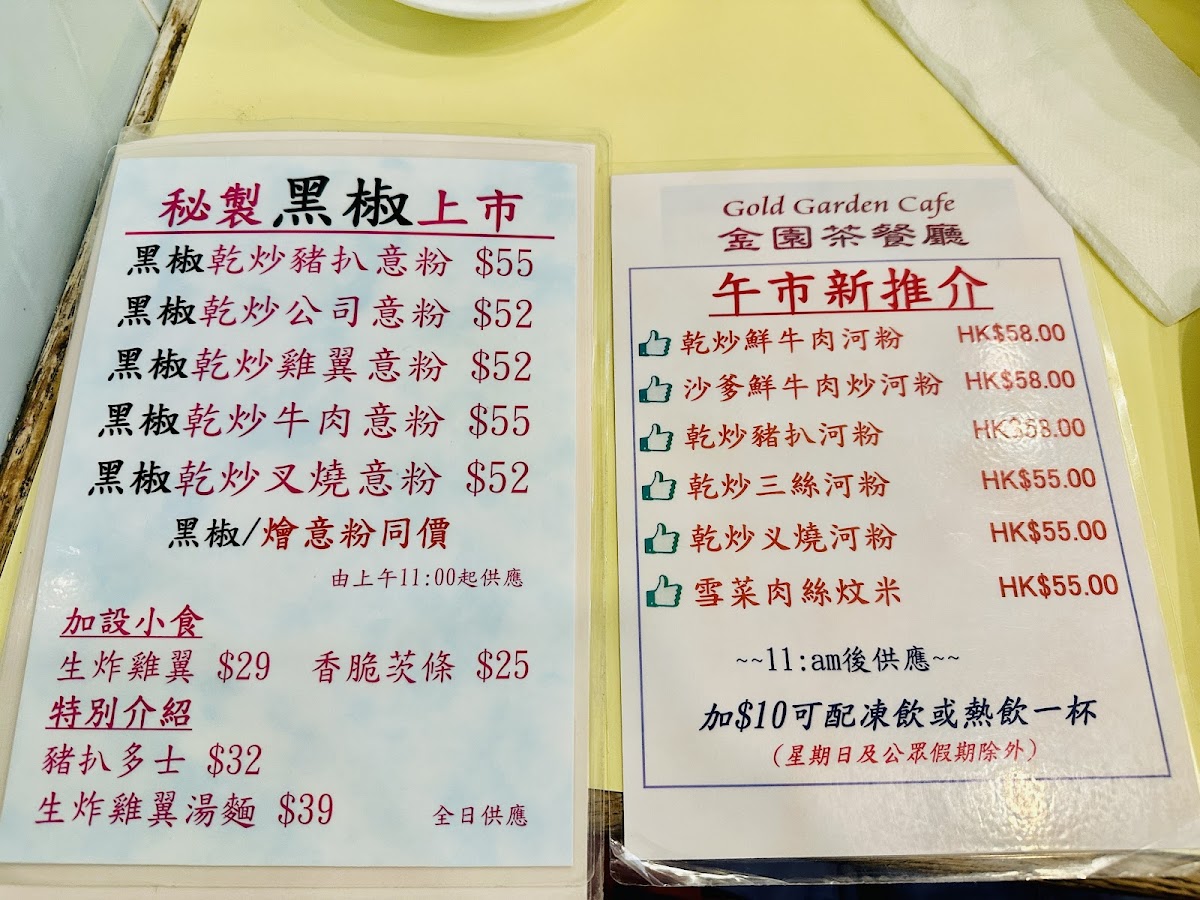 秘製黑椒上市
黑椒乾炒豬扒意粉 $55
黑椒乾炒公司意粉 $52
黑椒乾炒雞翼意粉 $52
黑椒乾炒牛肉意粉 $55
黑椒乾炒叉燒意粉 $52
黑椒/燴意粉同價
由上午11:00起供應
加設小食
生炸雞翼 $29 香脆茨條 $25
特別介紹
豬扒多士 $32
生炸雞翼湯麵 $39 全日供應
Gold Garden Cafe
金園茶餐廳
午市新推介
乾炒鮮牛肉河粉 HK$58.00
沙爹鮮牛肉炒河粉 HK$58.00
乾炒豬扒河粉 HK$58.00
乾炒三絲河粉 HK$55.00
乾炒叉燒河粉 HK$55.00
雪菜肉絲炆米 HK$55.00
~~11:am後供應~~
加$10可配凍飲或熱飲一杯
(星期日及公眾假期除外)